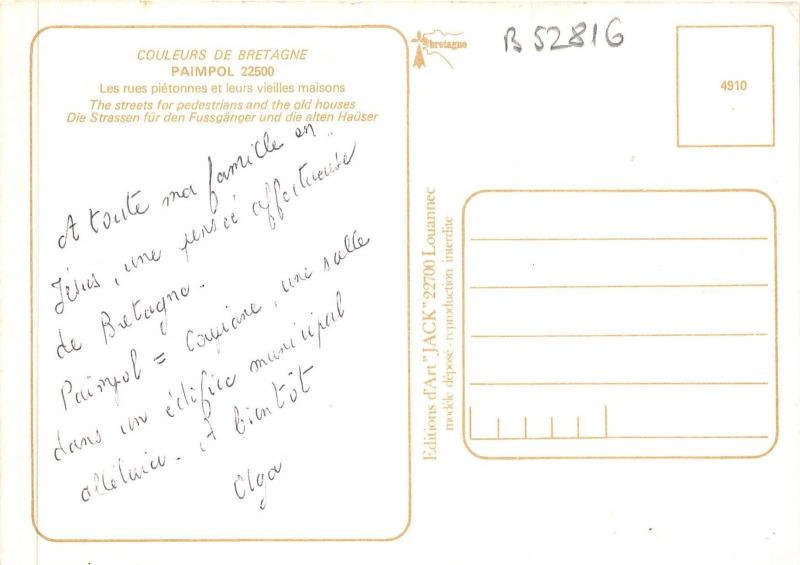 COULEURS DE BRETAGNE
PAIMPOL 22500
Les rues piétonnes et leurs vieilles maisons
The streets for pedestrians and the old houses
Die Strassen für den Fussgänger und die alten Haüser
A toute ma famille en
Jésus, une pensée affectueuse
de Bretagne.
Paimpol = une salle
dans un édifice municipal
alléluia. A bientôt
Olga
bretagne
B 52816
4910
Editions d'Art "JACK" 22700 Louannec
modèle déposé - reproduction interdite